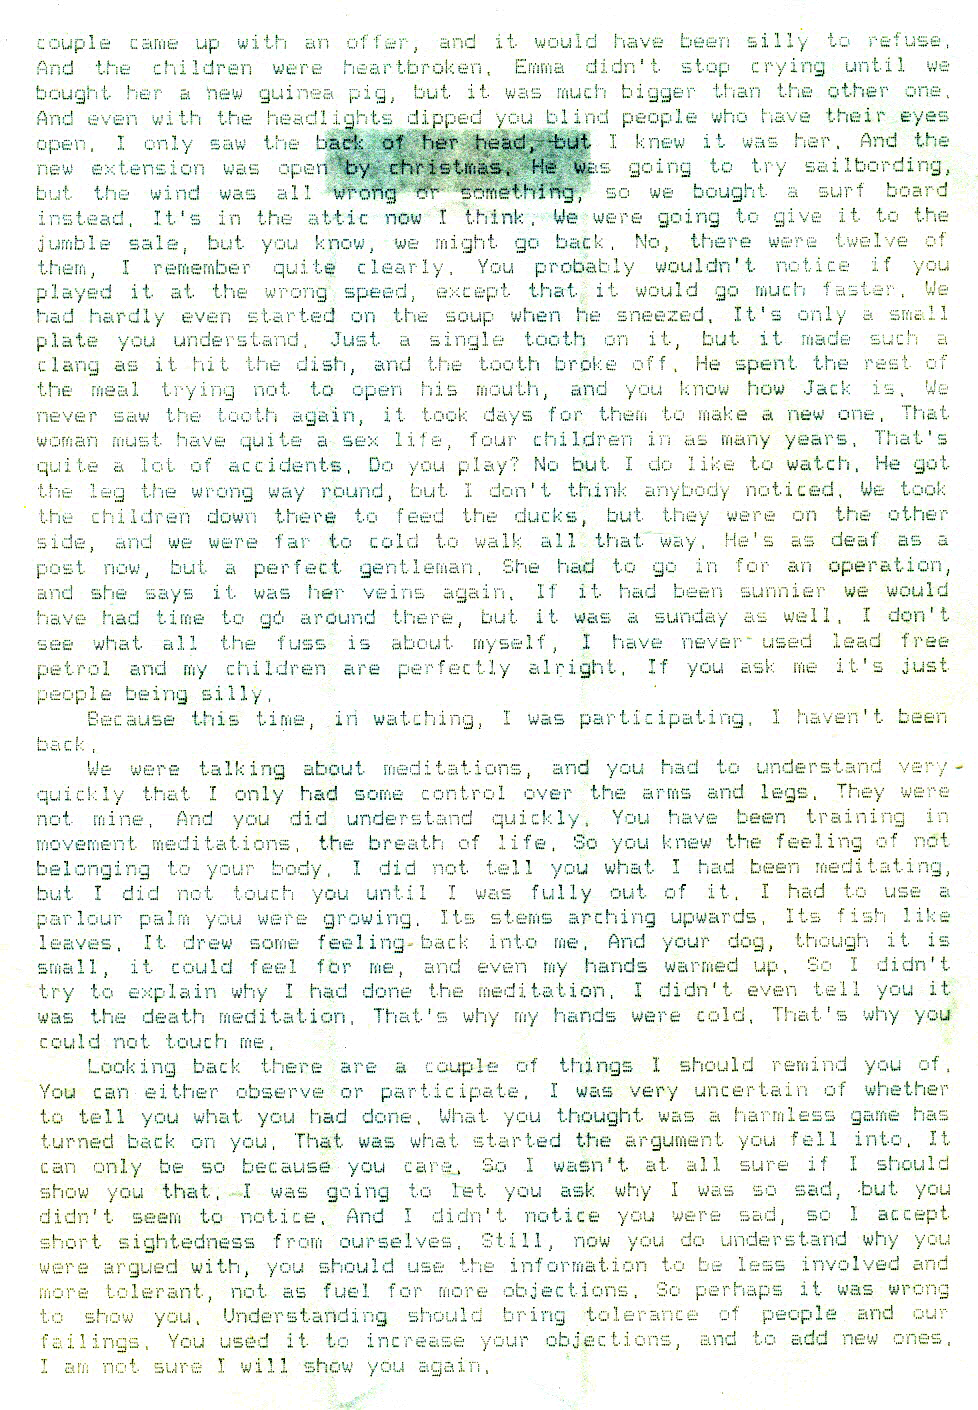 couple came up with an offer, and it would have been silly to refuse.
And the children were heartbroken. Emma didn't stop crying until we
bought her a new guinea pig, but it was much bigger than the other one.
And even with the headlights dipped you blind people who have their eyes
open. I only saw the back of her head, but I knew it was her. And the
new extension was open by christmas. He was going to try sailbording,
but the wind was all wrong or something, so we bought a surf board
instead. It's in the attic now I think. We were going to give it to the
jumble sale, but you know, we might go back. No, there were twelve of
them, I remember quite clearly. You probably wouldn't notice if you
played it at the wrong speed, except that it would go much faster. We
had hardly even started on the soup when he sneezed. It's only a small
plate you understand. Just a single tooth on it, but it made such a
clang as it hit the dish, and the tooth broke off. He spent the rest of
the meal trying not to open his mouth, and you know how Jack is. We
never saw the tooth again, it took days for them to make a new one. That
woman must have quite a sex life, four children in as many years. That's
quite a lot of accidents. Do you play? No but I do like to watch. He got
the leg the wrong way round, but I don't think anybody noticed. We took
the children down there to feed the ducks, but they were on the other
side, and we were far to cold to walk all that way. He's as deaf as a
post now, but a perfect gentleman. She had to go in for an operation,
and she says it was her veins again. If it had been sunnier we would
have had time to go around there, but it was a sunday as well. I don't
see what all the fuss is about myself, I have never used lead free
petrol and my children are perfectly alright. If you ask me it's just
people being silly.
Because this time, in watching, I was participating. I haven't been
back.
We were talking about meditations, and you had to understand very
quickly that I only had some control over the arms and legs. They were
not mine. And you did understand quickly. You have been training in
movement meditations, the breath of life. So you knew the feeling of not
belonging to your body. I did not tell you what I had been meditating,
but I did not touch you until I was fully out of it. I had to use a
parlour palm you were growing. Its stems arching upwards. Its fish like
leaves. It drew some feeling back into me. And your dog, though it is
small, it could feel for me, and even my hands warmed up. So I didn't
try to explain why I had done the meditation. I didn't even tell you it
was the death meditation. That's why my hands were cold. That's why you
could not touch me.
Looking back there are a couple of things I should remind you of.
You can either observe or participate. I was very uncertain of whether
to tell you what you had done. What you thought was a harmless game has
turned back on you. That was what started the argument you fell into. It
can only be so because you care. So I wasn't at all sure if I should
show you that. I was going to let you ask why I was so sad, but you
didn't seem to notice. And I didn't notice you were sad, so I accept
short sightedness from ourselves. Still, now you do understand why you
were argued with, you should use the information to be less involved and
more tolerant, not as fuel for more objections. So perhaps it was wrong
to show you. Understanding should bring tolerance of people and our
failings. You used it to increase your objections, and to add new ones.
I am not sure I will show you again.